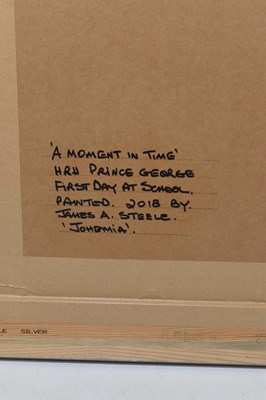 'A MOMENT IN TIME'
HRH PRINCE GEORGE
FIRST DAY AT SCHOOL.
PAINTED. 2018 BY.
JAMES A. STEELE.
'JOHEMIA'.
SILVER